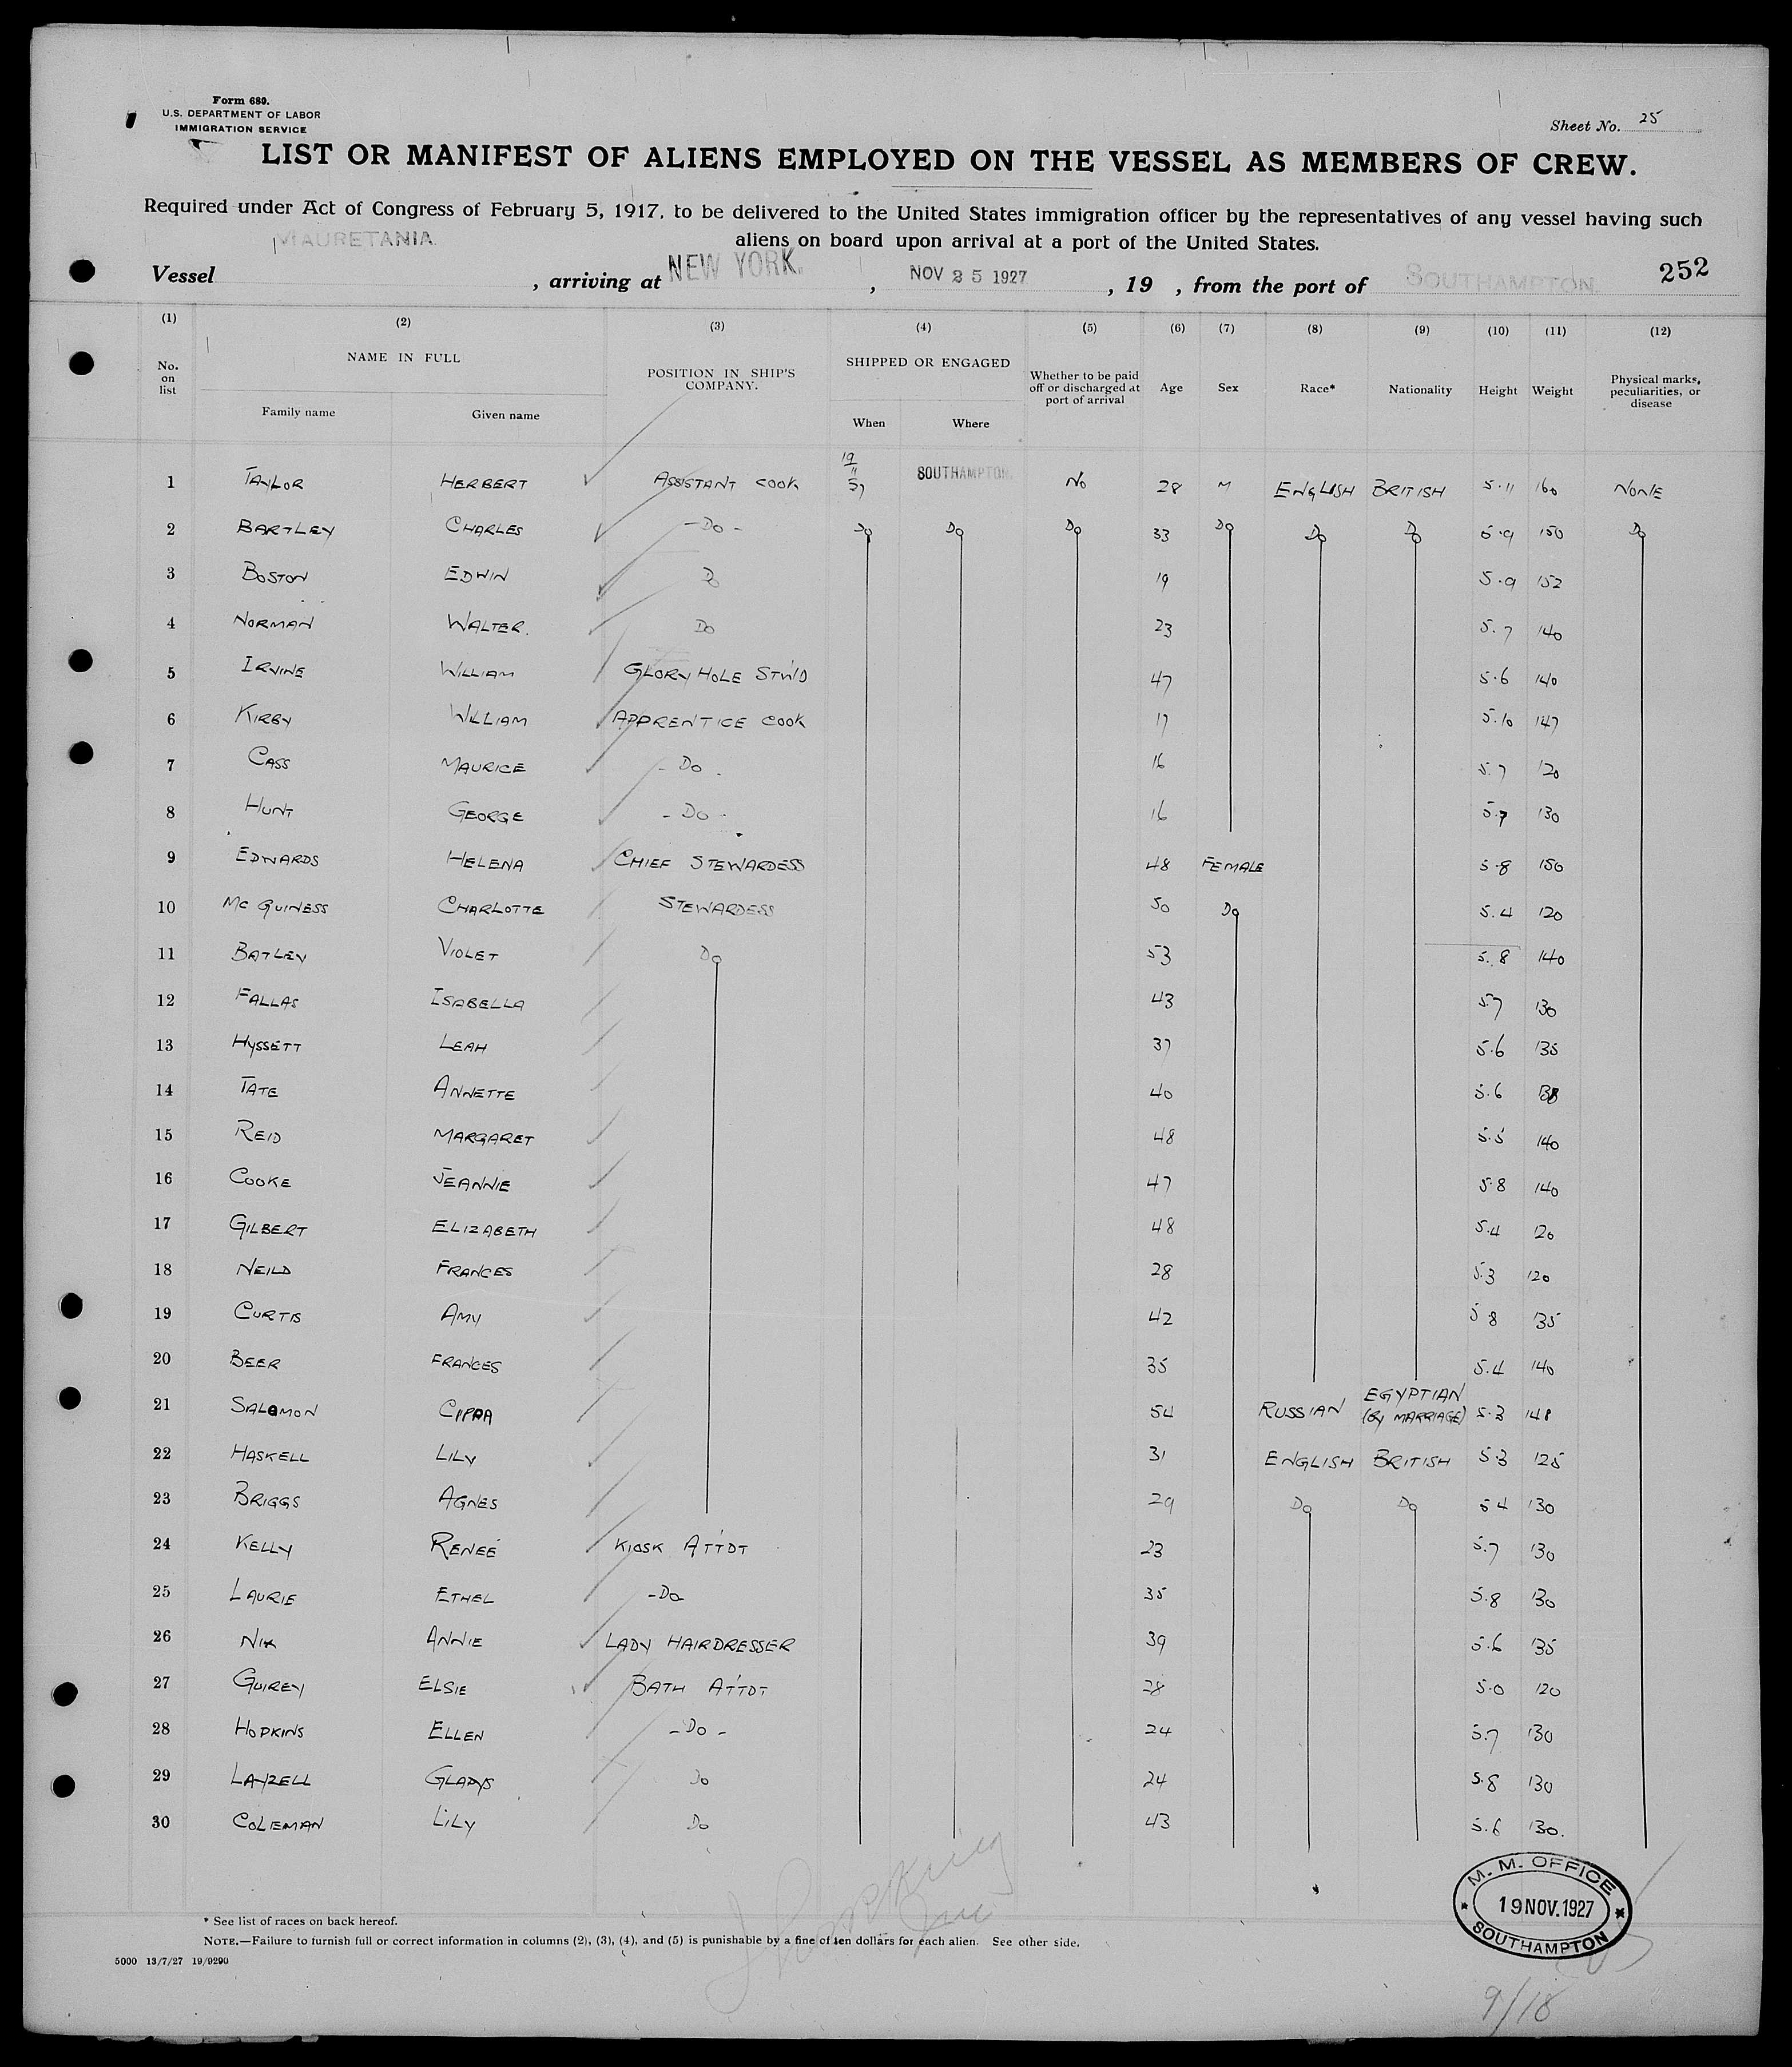 Form 689.
U.S. DEPARTMENT OF LABOR
IMMIGRATION SERVICE
Sheet No. 25
LIST OR MANIFEST OF ALIENS EMPLOYED ON THE VESSEL AS MEMBERS OF CREW.
Required under Act of Congress of February 5, 1917, to be delivered to the United States immigration officer by the representatives of any vessel having such
aliens on board upon arrival at a port of the United States.
Vessel MAURETANIA, arriving at NEW YORK, NOV 25 1927, 19 , from the port of SOUTHAMPTON. 252
(1) (2) (3) (4) (5) (6) (7) (8) (9) (10) (11) (12)
No. on list NAME IN FULL POSITION IN SHIP'S COMPANY. SHIPPED OR ENGAGED Whether to be paid off or discharged at port of arrival Age Sex Race* Nationality Height Weight Physical marks, peculiarities, or disease
Family name Given name When Where
1 TAYLOR HERBERT ASSISTANT COOK 19 11 SOUTHAMPTON. NO 28 M ENGLISH BRITISH 5.11 160 NONE
2 BARTLEY CHARLES -DO- DO DO DO 33 DO DO DO 5.9 150 DO
3 BOSTON EDWIN DO 19 5.9 152
4 NORMAN WALTER. DO 23 5.7 140
5 IRVINE WILLIAM GLORY HOLE ST'W'D 47 5.6 140
6 KIRBY WILLIAM APPRENTICE COOK 17 5.10 147
7 CASS MAURICE -DO. 16 5.7 120
8 HUNT GEORGE -DO- 16 5.7 130
9 EDWARDS HELENA CHIEF STEWARDESS 48 FEMALE 5.8 150
10 MC GUINESS CHARLOTTE STEWARDESS 50 DO 5.4 120
11 BATLEY VIOLET DO 53 5.8 140
12 FALLAS ISABELLA 43 5.7 130
13 HYSSETT LEAH 37 5.6 135
14 TATE ANNETTE 40 5.6
15 REID MARGARET 48 5.5 140
16 COOKE JEANNIE 47 5.8 140
17 GILBERT ELIZABETH 48 5.4 120
18 NEILD FRANCES 28 5.3 120
19 CURTIS AMY 42 5 8 135
20 BEER FRANCES 35 5.4 140
21 SALOMON CIPPA 54 RUSSIAN EGYPTIAN (BY MARRIAGE) 5.3 148
22 HASKELL LILY 31 ENGLISH BRITISH 5.3 125
23 BRIGGS AGNES 29 DO DO 5 4 130
24 KELLY RENEÉ KIOSK ATT'DT 23 5.7 130
25 LAURIE ETHEL -DO- 35 5.8 130
26 NIX ANNIE LADY HAIRDRESSER 39 5.6 135
27 GUIREY ELSIE BATH ATT'DT 28 5.0 120
28 HOPKINS ELLEN -DO- 24 5.7 130
29 LAYZELL GLADYS DO 24 5.8 130
30 COLEMAN LILY DO 43 5.6 130.
M. M. OFFICE
19 NOV. 1927
SOUTHAMPTON
* See list of races on back hereof.
NOTE.—Failure to furnish full or correct information in columns (2), (3), (4), and (5) is punishable by a fine of ten dollars for each alien. See other side.
5000 13/7/27 19/9290
9/18